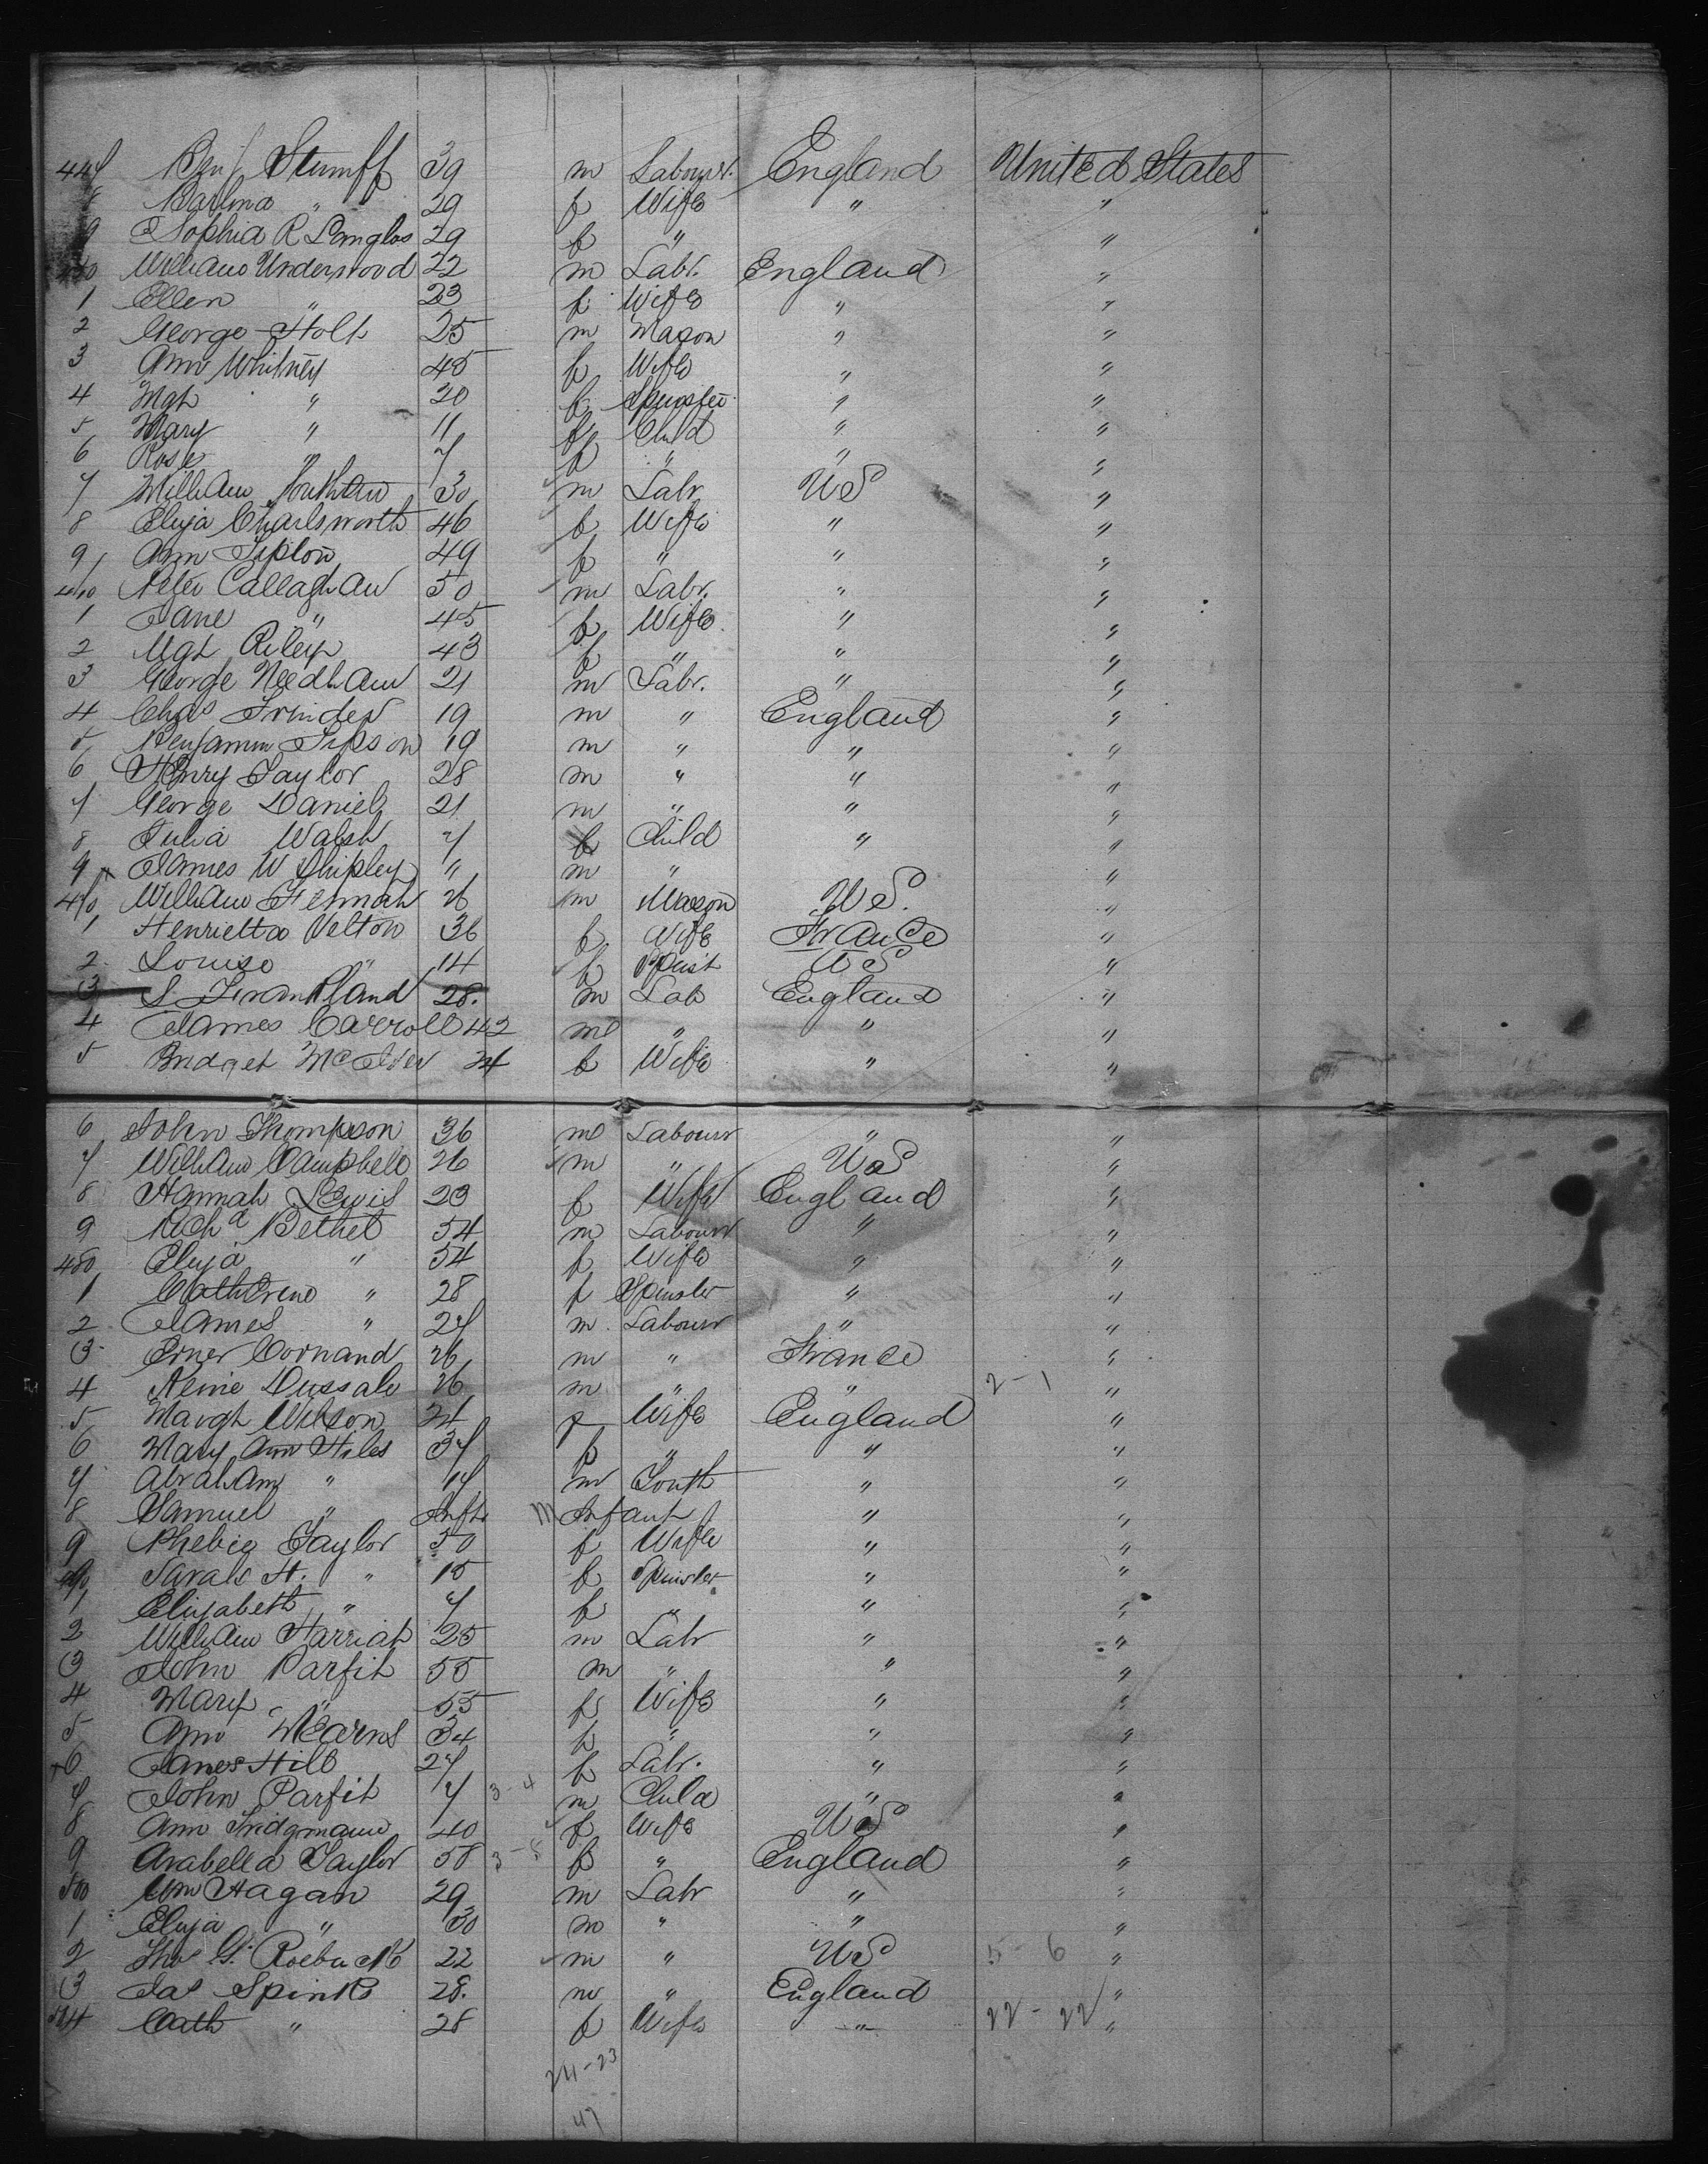 447 Benj Stumff 39 m Labour. England United States
8 Barlina " 29 f Wife " "
9 Sophia R Langlos 29 f " "
450 William Understood 22 m Labr. England "
1 Ellen " 23 f Wife " "
2 George Holt 25 m Mason " "
3 Ann Whitney 45 f Wife " "
4 Mgt " 20 f Spinster " "
5 Mary " 11 f Child " "
6 Rose " 7 f " " "
7 William 30 m Labr US "
8 Eliza Charlsworth 46 f Wife " "
9 Ann Tiplow 49 f " " "
460 Peter Callaghan 50 m Labr. " "
1 Jane " 45 f Wife " "
2 Mgt Riley 43 f " " "
3 George Needham 21 m Labr. " "
4 Chas Trinder 19 m " England "
5 Benjamin Tipson 19 m " " "
6 Henry Taylor 28 m " " "
7 George Daniel 21 m " " "
8 Julia Walsh 7 f Child " "
9 James W Shipley " m " "
470 William 26 m Mason US. "
1 Henrietta Velton 36 f Wife France "
2 Louise " 14 f Spinst US "
3 S Frankland 28. m Lab England "
4 James Carroll 42 m " " "
5 Bridget 34 f Wife " "
6 John Thompson 36 m Labour " "
7 William Campbell 26 m " US "
8 Hannah Lewis 23 f Wife England "
9 Richd Bethel 54 m Labour " "
480 Eliza " 54 f Wife " "
1 Catherine " 28 f Spinster " "
2 James " 27 m Labour " "
3 Erner Cornand 26 m " France "
4 Dussale 26 m " " 2 - 1 "
5 Margt Wilson 24 f Wife England "
6 Mary Ann Hiles 37 f " " "
7 Abraham " 14 m Youth " "
8 Samuel " Inft. m Infant " "
9 Phebie Taylor 50 f Wife " "
490 Sarah H. " 15 f Spinster " "
1 Elizabeth " 7 f " " "
2 William Harriat 25 m Labr " "
3 John Parfit 55 m " " "
4 Mary " 55 f Wife " "
5 Ann Mearns 34 f " " "
6 James Hill 27 f Labr. " "
7 John Parfit 7 3 - 4 m Child " "
8 Ann Tridgmann 40 f Wife US "
9 Arabella Taylor 58 3 - 5 f " England "
500 Wm Hagan 29 m Labr " "
1 Eliza " 30 m " " "
2 Tho G. Roebuck 22 m " US 5 - 6 "
3 Jas Spink 28. m " England "
504 Cath " 28 f Wife " 22 - 22 "
24-23
47